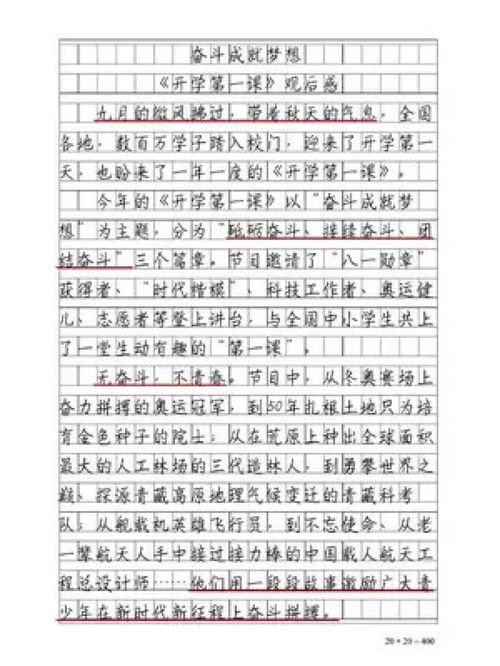 奋斗成就梦想
《开学第一课》观后感
九月的微风拂过，带着秋天的气息，全国
各地，数百万学子踏入校门，迎来了开学第一
天，也盼来了一年一度的《开学第一课》。
今年的《开学第一课》以“奋斗成就梦
想”为主题，分为“砥砺奋斗、接续奋斗、团
结奋斗”三个篇章。节目邀请了“八一勋章”
获得者、“时代楷模”、科技工作者、奥运健
儿、志愿者等登上讲台，与全国中小学生共上
了一堂生动有趣的“第一课”。
无奋斗，不青春。节目中，从冬奥赛场上
奋力拼搏的奥运冠军，到50年扎根土地只为培
育金色种子的院士；从在荒原上种出全球面积
最大的人工林场的三代造林人，到勇攀世界之
巅、探源青藏高原地理气候变迁的青藏科考
队；从舰载机英雄飞行员，到不忘使命、从老
一辈航天人手中接过接力棒的中国载人航天工
程总设计师……他们用一段段故事激励广大青
少年在新时代新征程上奋斗拼搏。
20×20=400